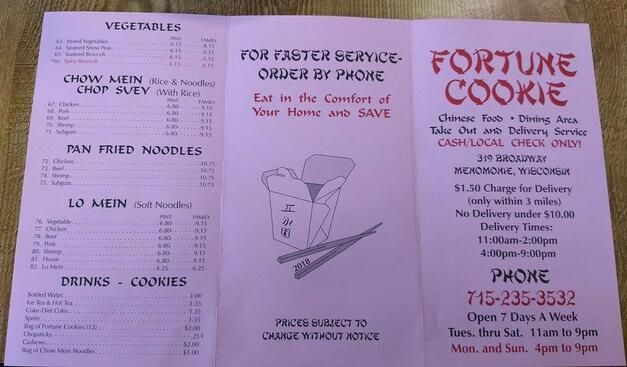 VEGETABLES
PINT FAMILY
63. Mixed Vegetables 6.15 8.15
64. Sauteed Snow Peas 6.15 8.15
65. Sauteed Broccoli 6.15 8.15
*66. Spicy Broccoli 6.15 8.15
CHOW MEIN (Rice & Noodles)
CHOP SVEY (With Rice)
PINT FAMILY
67. Chicken 6.80 9.15
68. Pork 6.80 9.15
69. Beef 6.80 9.15
70. Shrimp 6.80 9.15
71. Subgum 6.80 9.15
PAN FRIED NOODLES
72. Chicken 10.75
73. Beef 10.75
74. Shrimp 10.75
75. Subgum 10.75
LO MEIN (Soft Noodles)
PINT FAMILY
76. Vegetable 6.80 9.15
77. Chicken 6.80 9.15
78. Beef 6.80 9.15
79. Pork 6.80 9.15
80. Shrimp 6.80 9.15
81. House 6.80 9.15
82. Lo Mein 4.25 6.25
DRINKS - COOKIES
Bottled Water 1.00
Ice Tea & Hot Tea 1.35
Coke-Diet Coke 1.35
Sprite 1.35
Bag of Fortune Cookies (12) $2.00
Chopsticks .25¢
Cashews $2.00
Bag of Chow Mein Noodles $1.00
FOR FASTER SERVICE-
ORDER BY PHONE
Eat in the Comfort of
Your Home and SAVE
2018
PRICES SUBJECT TO
CHANGE WITHOUT NOTICE
FORTUNE
COOKIE
Chinese Food • Dining Area
Take Out and Delivery Service
CASH/LOCAL CHECK ONLY!
319 BROADWAY
MENOMONIE, WISCONSIN
$1.50 Charge for Delivery
(only within 3 miles)
No Delivery under $10.00
Delivery Times:
11:00am-2:00pm
4:00pm-9:00pm
PHONE
715-235-3532
Open 7 Days A Week
Tues. thru Sat. 11am to 9pm
Mon. and Sun. 4pm to 9pm